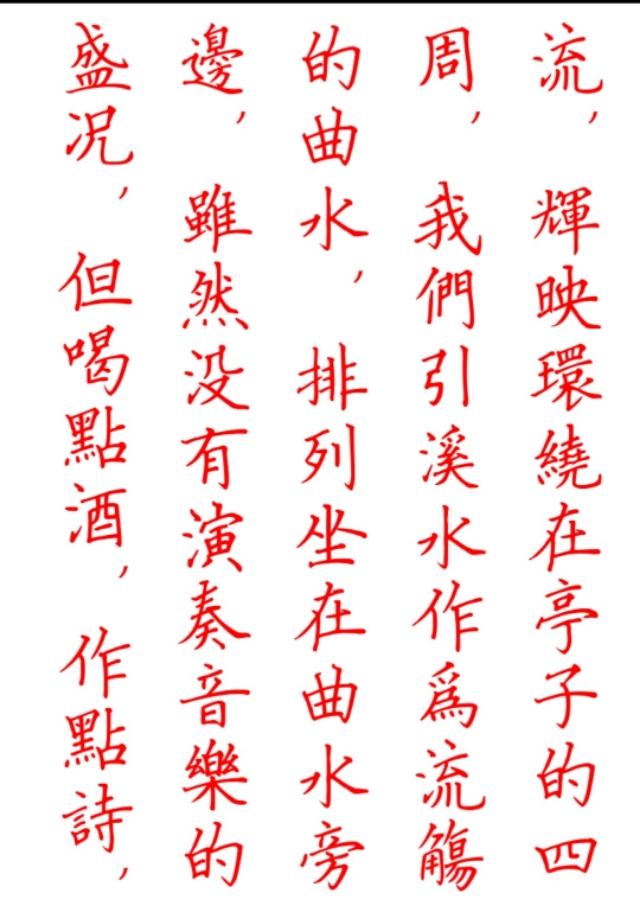 流，輝映環繞在亭子的四
周，我們引溪水作爲流觴
的曲水，排列坐在曲水旁
邊，雖然没有演奏音樂的
盛况，但喝點酒，作點詩，